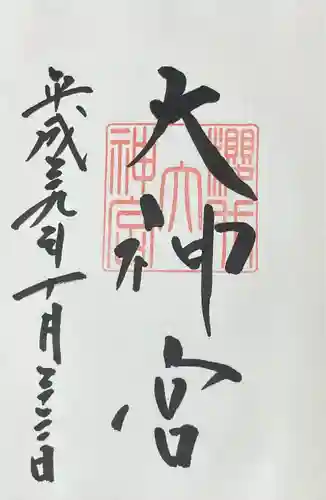 大神宮
櫻新
大
神宮
平成二九年十月二二日